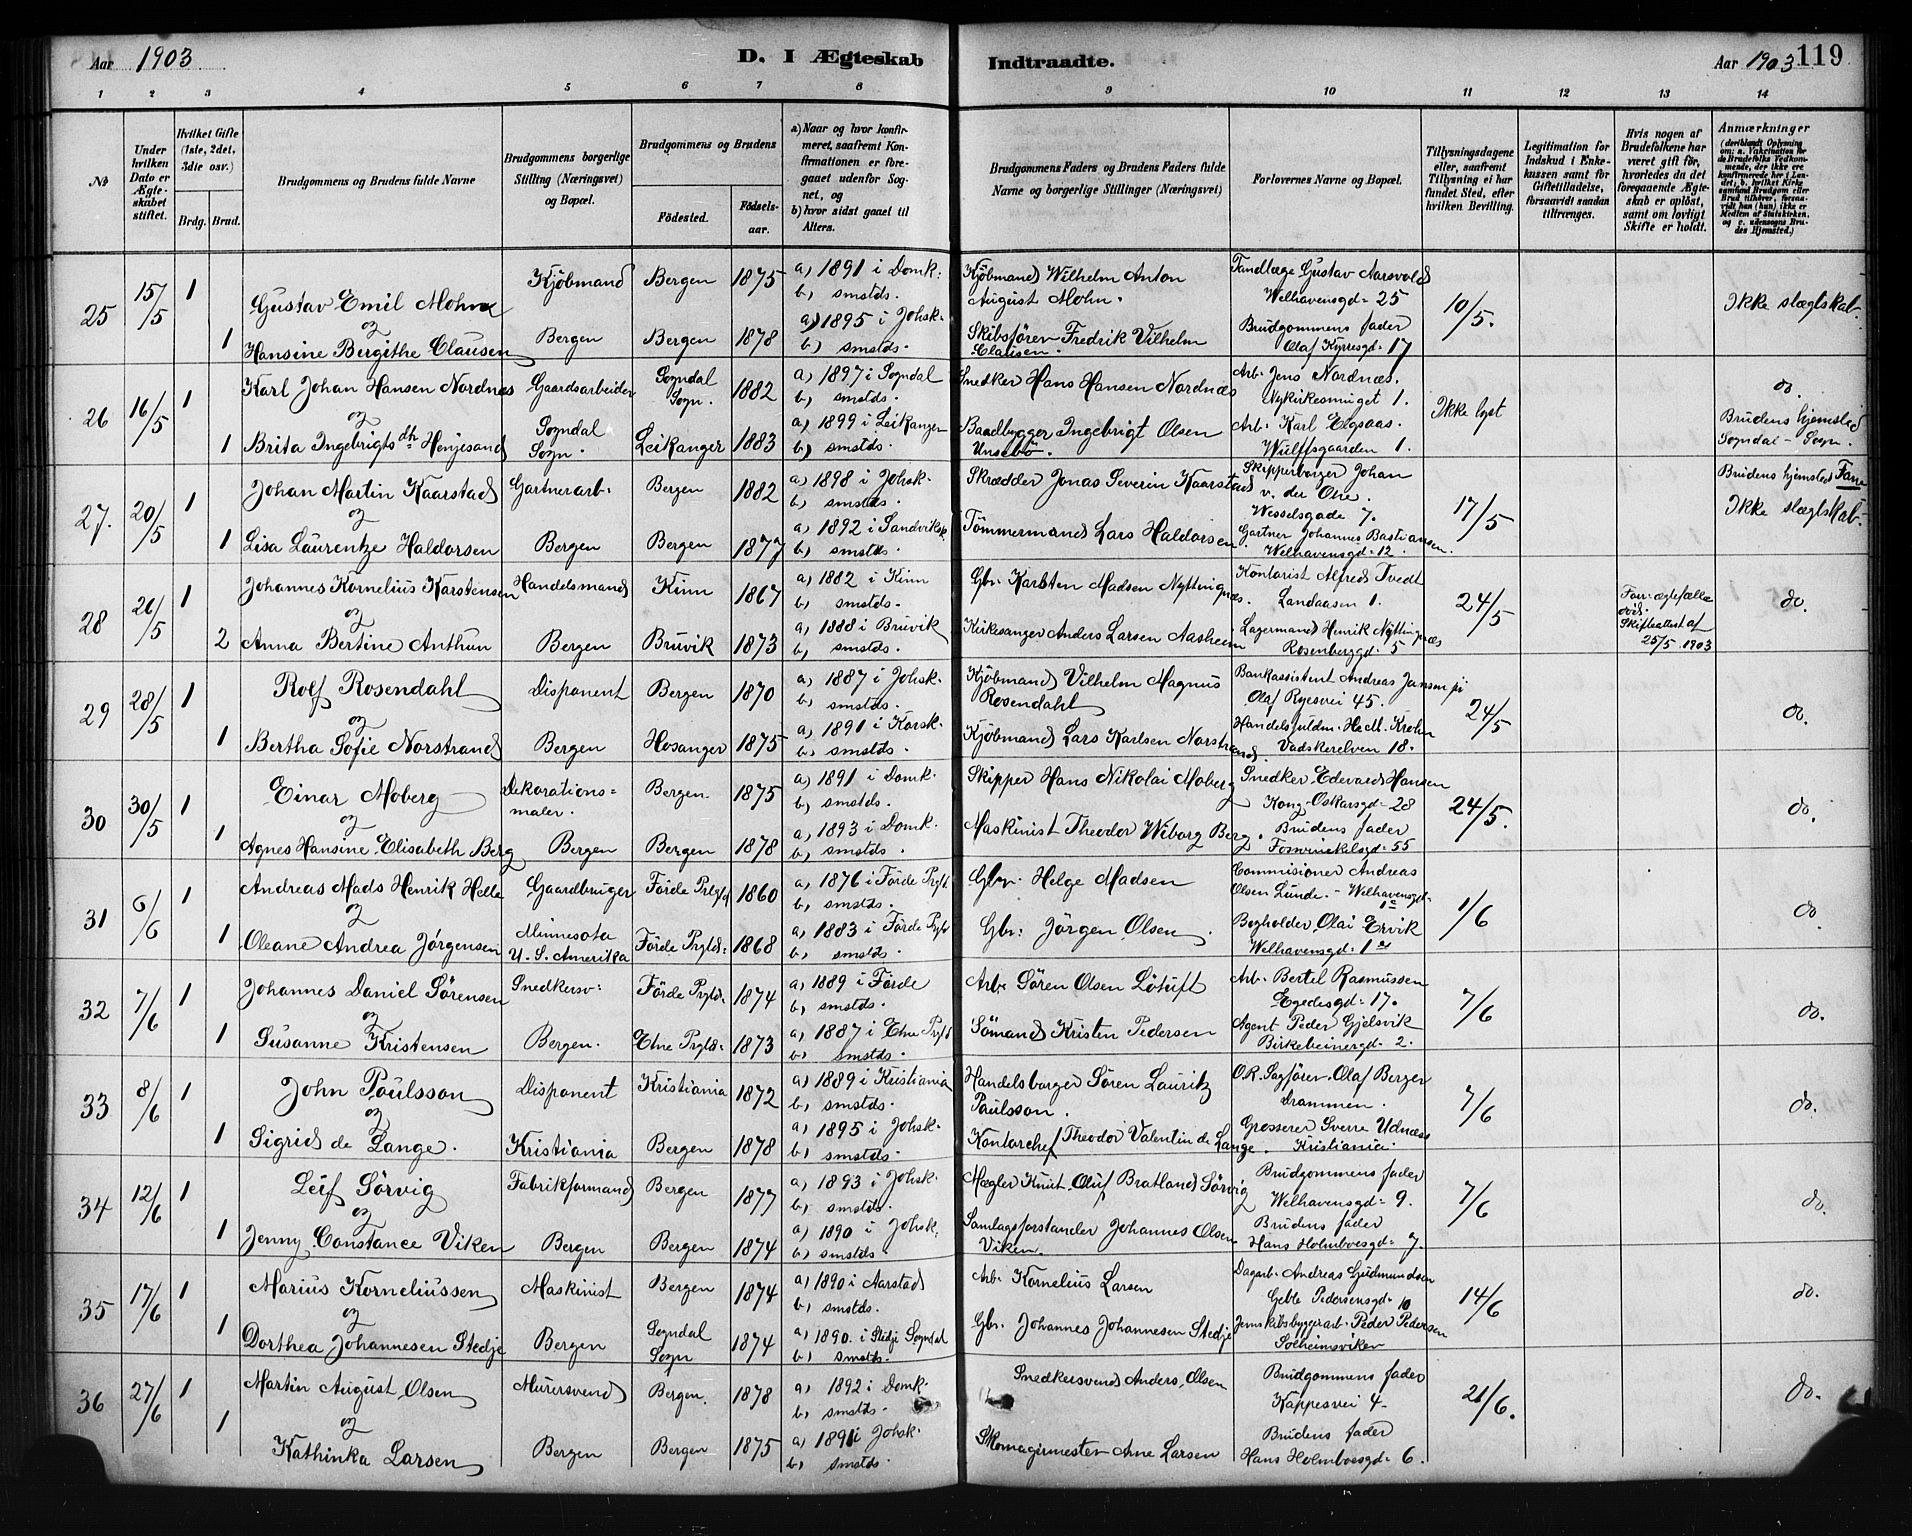 Aar 1903
D. I Ægteskab Indtraadte.
Aar 1903 119
1 2 3 4 5 6 7 8 9 10 11 12 13 14
№
Under hvilken Dato er Ægteskabet stiftet.
Hvilket Gifte (1ste, 2det, 3die osv.)
Brdg. Brud.
Brudgommens og Brudens fulde Navne
Brudgommens borgerlige Stilling (Næringsvei) og Bopæl.
Brudgommens og Brudens
Fødested. Fødselsaar.
a) Naar og hvor konfirmeret, saafremt Konfirmationen er foregaaet udenfor Sognet, og
b) hvor sidst gaaet til Alters.
Brudgommens Faders og Brudens Faders fulde Navne og borgerlige Stillinger (Næringsvei)
Forlovernes Navne og Bopæl.
Tillysningsdagene eller, saafremt Tillysning ei har fundet Sted, efter hvilken Bevilling.
Legitimation for Indskud i Enkekassen samt for Giftetilladelse, forsaavidt saadan tiltrænges.
Hvis nogen af Brudefolkene har været gift før, hvorledes da det foregaaende Ægteskab er opløst, samt om lovligt Skifte er holdt.
Anmærkninger (deriblandt Oplysning om: a. Vakcination for de Brudefolks Vedkommende, der ikke ere konfirmerede her i Landet, b. hvilket Kirkesamfund Brudgom eller Brud tilhører, forsaavidt han (hun) ikke er Medlem af Statskirken, og c. udensogns Brudes Hjemsted.)
25 15/5 1 Gustav Emil Mohn Kjøbmand Bergen 1875 a) 1891 i Domk. b) smstds. Kjøbmand Wilhelm Anton August Mohn. Tandlæge Gustav Aarsvold Welhavensgd. 25 10/5. Ikke slægtskab.
og
1 Hansine Bergithe Clausen Bergen Bergen 1878 a) 1895 i Johsk. b) smstds. Skibsfören Fredrik Vilhelm Clausen. Brudgommens fader Olaf Kyrresgd. 17
26 16/5 1 Karl Johan Hansen Nordnæs Gaardsarbeider Sogndal Sogn. 1882 a) 1897 i Sogndal b) smstds. Snedker Hans Hansen Nordnæs Arb. Jens Nordnæs. Nykirkesmuget 1. Ikke lyst do.
og
1 Brita Ingebrigtsdh Henjesand Sogndal Sogn. Leikanger 1883 a) 1899 i Leikanger b) smstds. Baadbygger Ingebrigt Olsen Arb. Karl Elgsaas. Wulffsgaarden 1. Brudens hjemsted Sogndal - Sogn.
27. 20/5 1 Johan Martin Kaarstad Gartnerarb. Bergen 1882 a) 1898 i Johsk. b) smstds. Skrædder Jonas Severin Kaarstad Skipperborger Johan v. der Ohe. Wesselsgade 7. 17/5 Brudens hjemsted Fane Ikke slægtskab.
og
1 Lisa Laurentze Haldorsen Bergen Bergen 1877 a) 1892 i Sandviksk. b) smstds. Tömmermand Lars Haldorsen Gartner Johannes Bastiansen. Welhavensgd. 12.
28 26/5 1 Johannes Kornelius Karstensen Handelsmand Kinn 1867 a) 1882 i Kinn b) smstds. Gbr. Karsten Madsen Nyttingnæs. Kontorist Alfred Tvedt Landaasen 1. 24/5 do.
og
2 Anna Bertine Anthun Bergen Bruvik 1873 a) 1888 i Bruvik b) smstds. Kirkesanger Anders Larsen Aasheim Lagermand Henrik Nyttingnæs Rosenberggd. 5 Forr. ægtefælle Skifteattest af 25/5 1903
29 28/5 1 Rolf Rosendahl Disponent Bergen 1870 a) 1887 i Johsk. b) smstds. Kjøbmand Vilhelm Magnus Rosendahl Bankassistent Andreas Jansen Olaf Ryesvei 45. 24/5 do.
og
1 Bertha Sofie Norstrand Bergen Hosanger 1875 a) 1891 i Korsk. b) smstds. Kjöbmand Lars Karlsen Norstrand. Handelsfuldm. H. M. Krohn Vadskerelven 18.
30 30/5 1 Einar Moberg Dekorationsmaler. Bergen 1875 a) 1891 i Domk. b) smstds. Skipper Hans Nikolai Moberg Snedker Edvard Hansen Kong Oskarsgd. 28 24/5. do.
og
1 Agnes Hansine Elisabeth Berg Bergen Bergen 1878 a) 1893 i Domk. b) smstds. Maskinist Theodor Wiborg Berg. Brudens fader Fosvinckelsgd. 55
31 6/6 1 Andreas Mads Henrik Helle Gaardbruger Förde Prgld 1860 a) 1876 i Förde Prgld b) smstds. Gbr. Helge Madsen Commisioner Andreas Olsen Lunde. - Welhavensgd. 1/6 do.
og
1 Oleane Andrea Jørgensen Minnesota U. S. Amerika Förde Prgld. 1868 a) 1883 i Förde Prgld b) smstds. Gbr. Jörgen Olsen. Bogholder Olai Ervik Welhavensgd. 1a
32 7/6 1 Johannes Daniel Sörensen Snedkersv. Förde Prgld. 1874 a) 1889 i Förde b) smstds. Arb. Sören Olsen Lötuft Arb. Bertel Rasmussen Egedesgd. 17. 7/6 do.
og
1 Susanne Kristensen Bergen. Etne Prgld. 1873 a) 1887 i Etne Prgld b) smstds. Sömand Kristen Pedersen Agent Peder Gjelsvik Birkebeinergd. 2.
33 8/6 1 John Paulsson Disponent Kristiania 1872 a) 1889 i Kristiania b) smstds. Handelsborger Sören Lauritz Paulsson. O.R. Sagfören. Olaf Berger Drammen. 7/6 do.
og
1 Sigrid de Lange. Kristiania Bergen 1878 a) 1895 i Johsk. b) smstds. Kontorchef Theodor Valentin de Lange. Grosserer Sverre Udnæs Kristiania.
34 12/6 1 Leif Sörvig Fabrikformand Bergen 1877 a) 1893 i Johsk. b) smstds. Mægler Knut Oluf Bratland Sörvig Brudgommens fader Welhavensgd. 9. 7/6 do.
og
1 Jenny Constance Viken Bergen Bergen 1874 a) 1890 i Johsk. b) smstds. Samlagsforstander Johannes Olsen Viken. Brudens fader Hans Holmboesgd. 7.
35 17/6 1 Marius Korneliussen Maskinist Bergen 1874 a) 1890 i Aarstad b) smstds. Arb. Kornelius Larsen Dagarb. Andreas Gudmundsen Geble Pedersensgd. 10 14/6 do.
og
1 Dorthea Johannesen Stedje Bergen Sogndal Sogn 1874 a) 1890. i Stedje Sogndal b) smstds. Gbr. Johannes Johannesen Stedje Jernskibsbyggerarb. Peder Pedersen Solheimsviken
36 27/6 1 Martin August Olsen Murersvend Bergen. 1878 a) 1892 i Domk. b) smstds. Snedkersvend Anders Olsen Brudgommens fader Kappesvei 4. 21/6. do.
og
1 Kathinka Larsen Bergen Bergen 1875 a) 1891 i Johsk. b) smstds. Skomagermester Arne Larsen Brudens fader Hans Holmboesgd. 6.